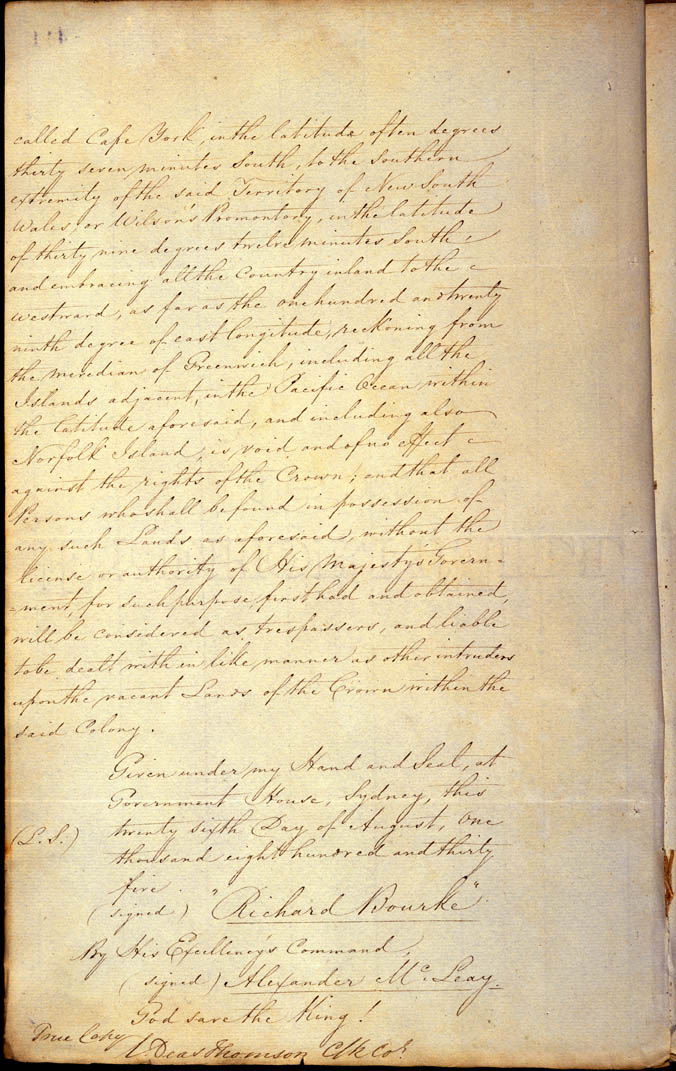 called Cape York, in the latitude of ten degrees
thirty seven minutes South, to the Southern
extremity of the said Territory of New South
Wales, or Wilson's Promontory, in the latitude
of thirty nine degrees twelve minutes South,
and embracing all the Country inland to the
westward, as far as the one hundred and twenty
ninth degree of east longitude, reckoning from
the meridian of Greenwich, including all the
Islands adjacent, in the Pacific Ocean within
the latitude aforesaid, and including also
Norfolk Island, is void and of no effect
against the rights of the Crown; and that all
Persons who shall be found in possession of
any such Lands as aforesaid, without the
license or authority of His Majesty's Govern-
-ment, for such purpose, first had and obtained,
will be considered as trespassers, and liable
to be dealt with in like manner as other intruders
upon the vacant Lands of the Crown within the
said Colony.
Given under my Hand and Seal, at
Government House, Sydney, this
(L.S.) twenty sixth Day of August, One
thousand eight hundred and thirty
five.
(signed) "Richard Bourke"
By His Excellency's Command,
(signed) Alexander McLeay.
God save the King!
True Copy
Deas Thomson Clk Col